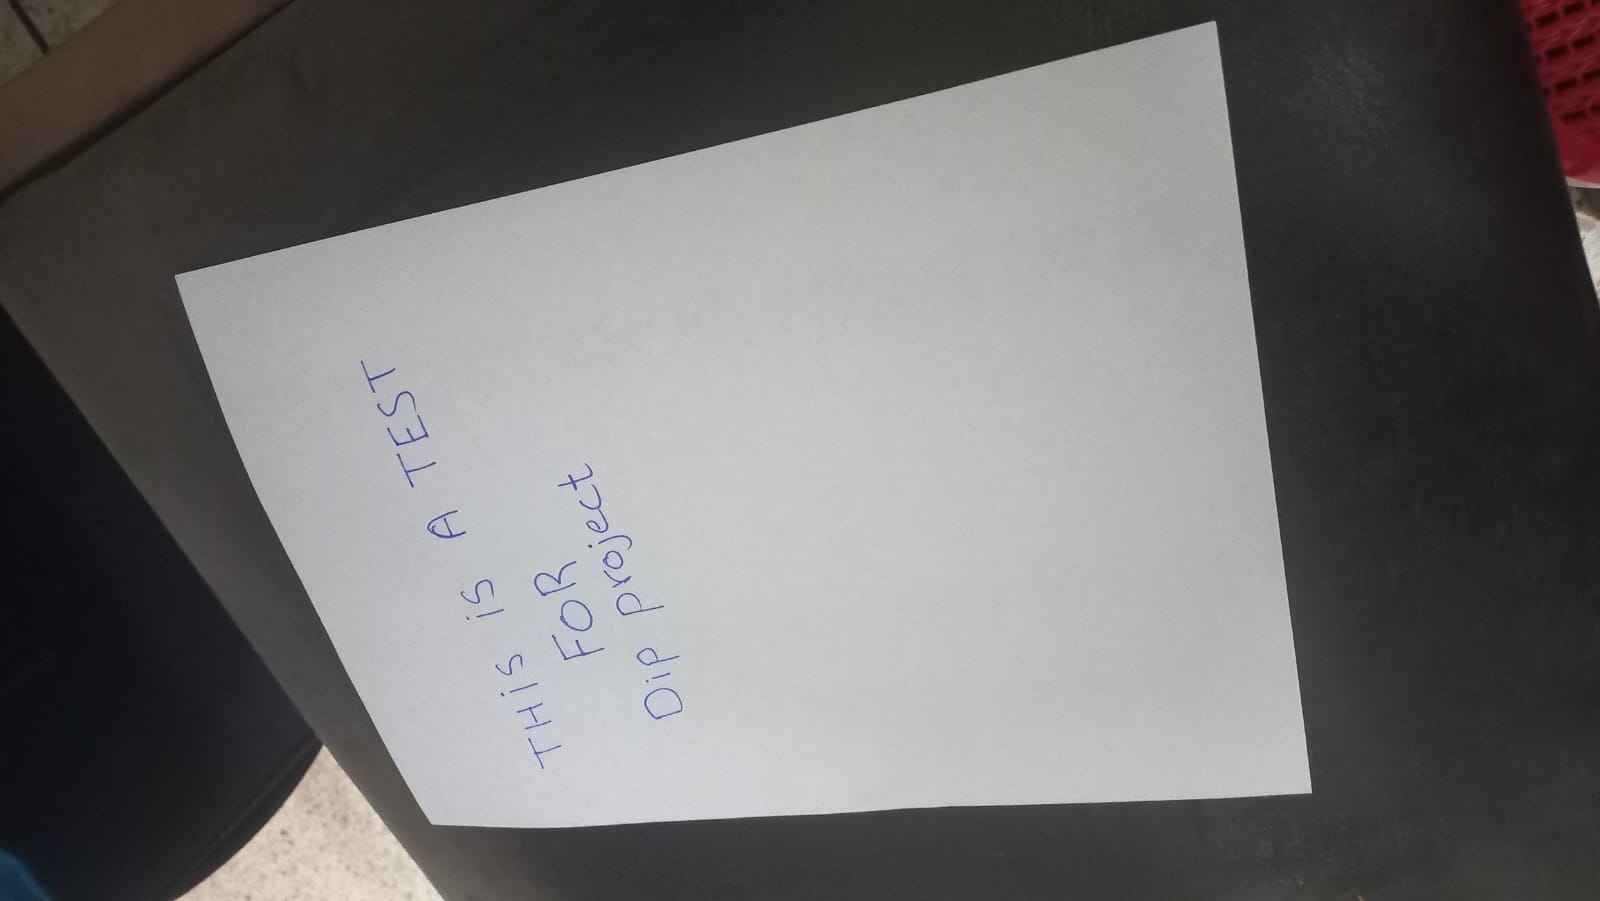 THiS iS A TEST
FOR
Dip project